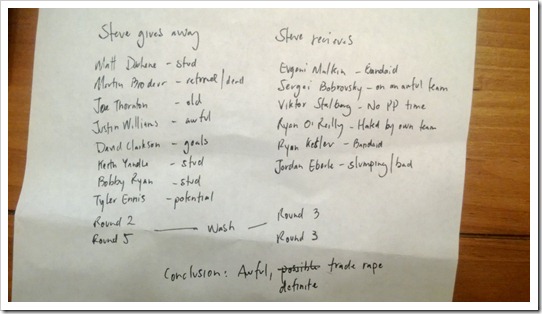 Steve gives away
Matt Duchene - stud
Martin Brodeur - retired/dead
Joe Thornton - old
Justin Williams - awful
David Clarkson - goals
Keith Yandle - stud
Bobby Ryan - stud
Tyler Ennis - potential
Round 2
Round 5
Wash
Steve recieves
Evgeni Malkin - Bandaid
Sergei Bobrovsky - on an awful team
Viktor Stalberg - No PP time
Ryan O'Reilly - Hated by own team
Ryan Kesler - Bandaid
Jordan Eberle - slumping/bad
Round 3
Round 3
Conclusion: Awful, possible trade rape
definite